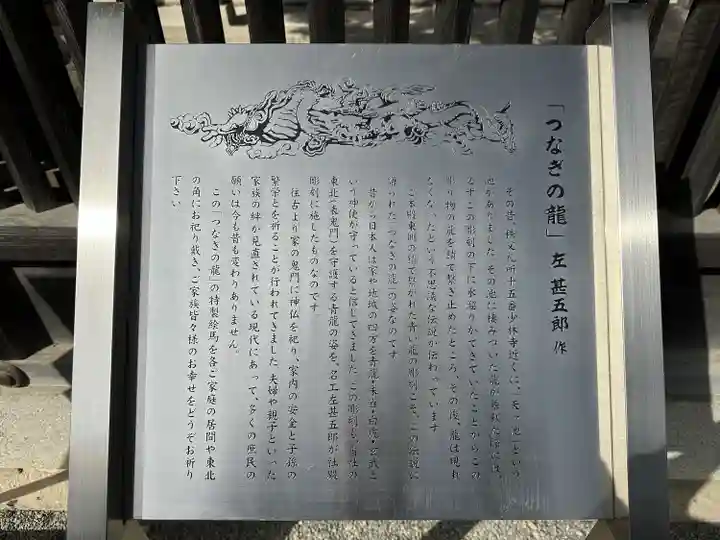 「つなぎの龍」左 甚五郎 作
その昔、秩父札所十五番少林寺近くに、「天ヶ池」という
池がありました。その池に棲みついた龍が暴れた際には、
必ずこの彫刻の下に水溜りができていたことからこの
彫り物の龍を鎖で繋ぎ止めたところ、その後、龍は現れ
なくなったという不思議な伝説が伝わっています。
ご本殿東側の鎖で繋がれた青い龍の彫刻こそ、この伝説に
語られた「つなぎの龍」の姿なのです。
昔から日本人は家や地域の四方を青龍・朱雀・白虎・玄武と
いう神使が守っていると信じてきました。この彫刻も、当社の
東北(表鬼門)を守護する青龍の姿を、名工左甚五郎が社殿
彫刻に施したものなのです。
往古より家の鬼門に神仏を祀り、家内の安全と子孫の
繁栄とを祈ることが行われてきました。夫婦や親子といった
家族の絆が見直されている現代にあって、多くの庶民の
願いは今も昔も変わりありません。
この「つなぎの龍」の特製絵馬を各ご家庭の居間や東北
の角にお祀り戴き、ご家族皆々様のお幸せをどうぞお祈り
下さい